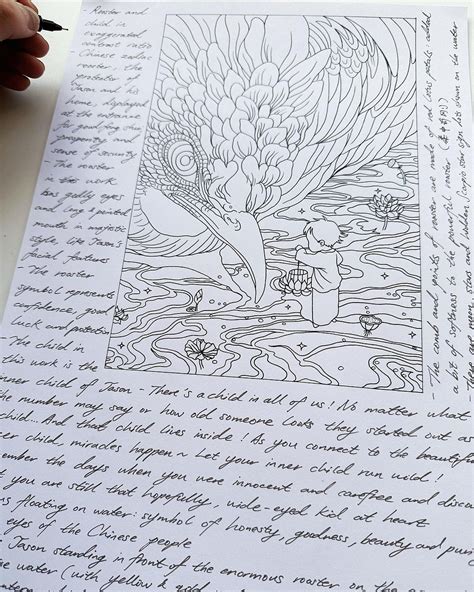 - Rooster and
child in
exaggerated
contrast ratio
- Chinese zodiac
rooster - the
protector of
Jason and his
home, displayed
at the entrance
for good feng shui
prosperity and
sense of security
- The rooster
in this work
has godly eyes
and long & pointed
mouth in majestic
style like Jason's
facial features
- The rooster
symbol represents
confidence, good
luck and potential
- The child in
this work is the
inner child of Jason - There's a child in all of us! No matter what
the number may say or how old someone looks they started out as
child... And that child lives inside! As you connect to the beautiful
er child, miracles happen ~ Let your inner child run wild!
ember the days when you were innocent and carefree and disco
t you are still that hopefully, wide-eyed kid at heart
ns floating on water: symbol of honesty, goodness, beauty and puri
eyes of the Chinese people
Jason standing in front of the enormous rooster on the
e water (with yellow & gold
- The comb and wattles of rooster are made of red lotus petals: added
a bit of softness to the powerful rooster
- Here are many stars and hidden Capricorn star sign dots shown on the water